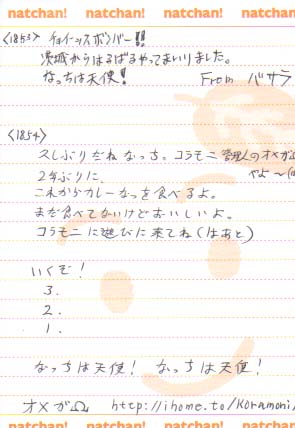 natchan! natchan! natchan! natchan!
<1853> チョイーッスボンバー!!
茨城からはるばるやってまいりました。
なっちは天使! From バサラ
<1854>
久しぶりだねなっち。コラモニ管理人のオメガ
やよ〜
2年ぶりに、
これからカレーなっを食べるよ。
まだ食べてないけどおいしいよ。
コラモニに遊びに来てね(はあと)
いくぞ!
3.
2.
1.
なっちは天使! なっちは天使!
オメガΩ http://ihome.to/Koramoni/
natchan! natchan! natchan! natchan!